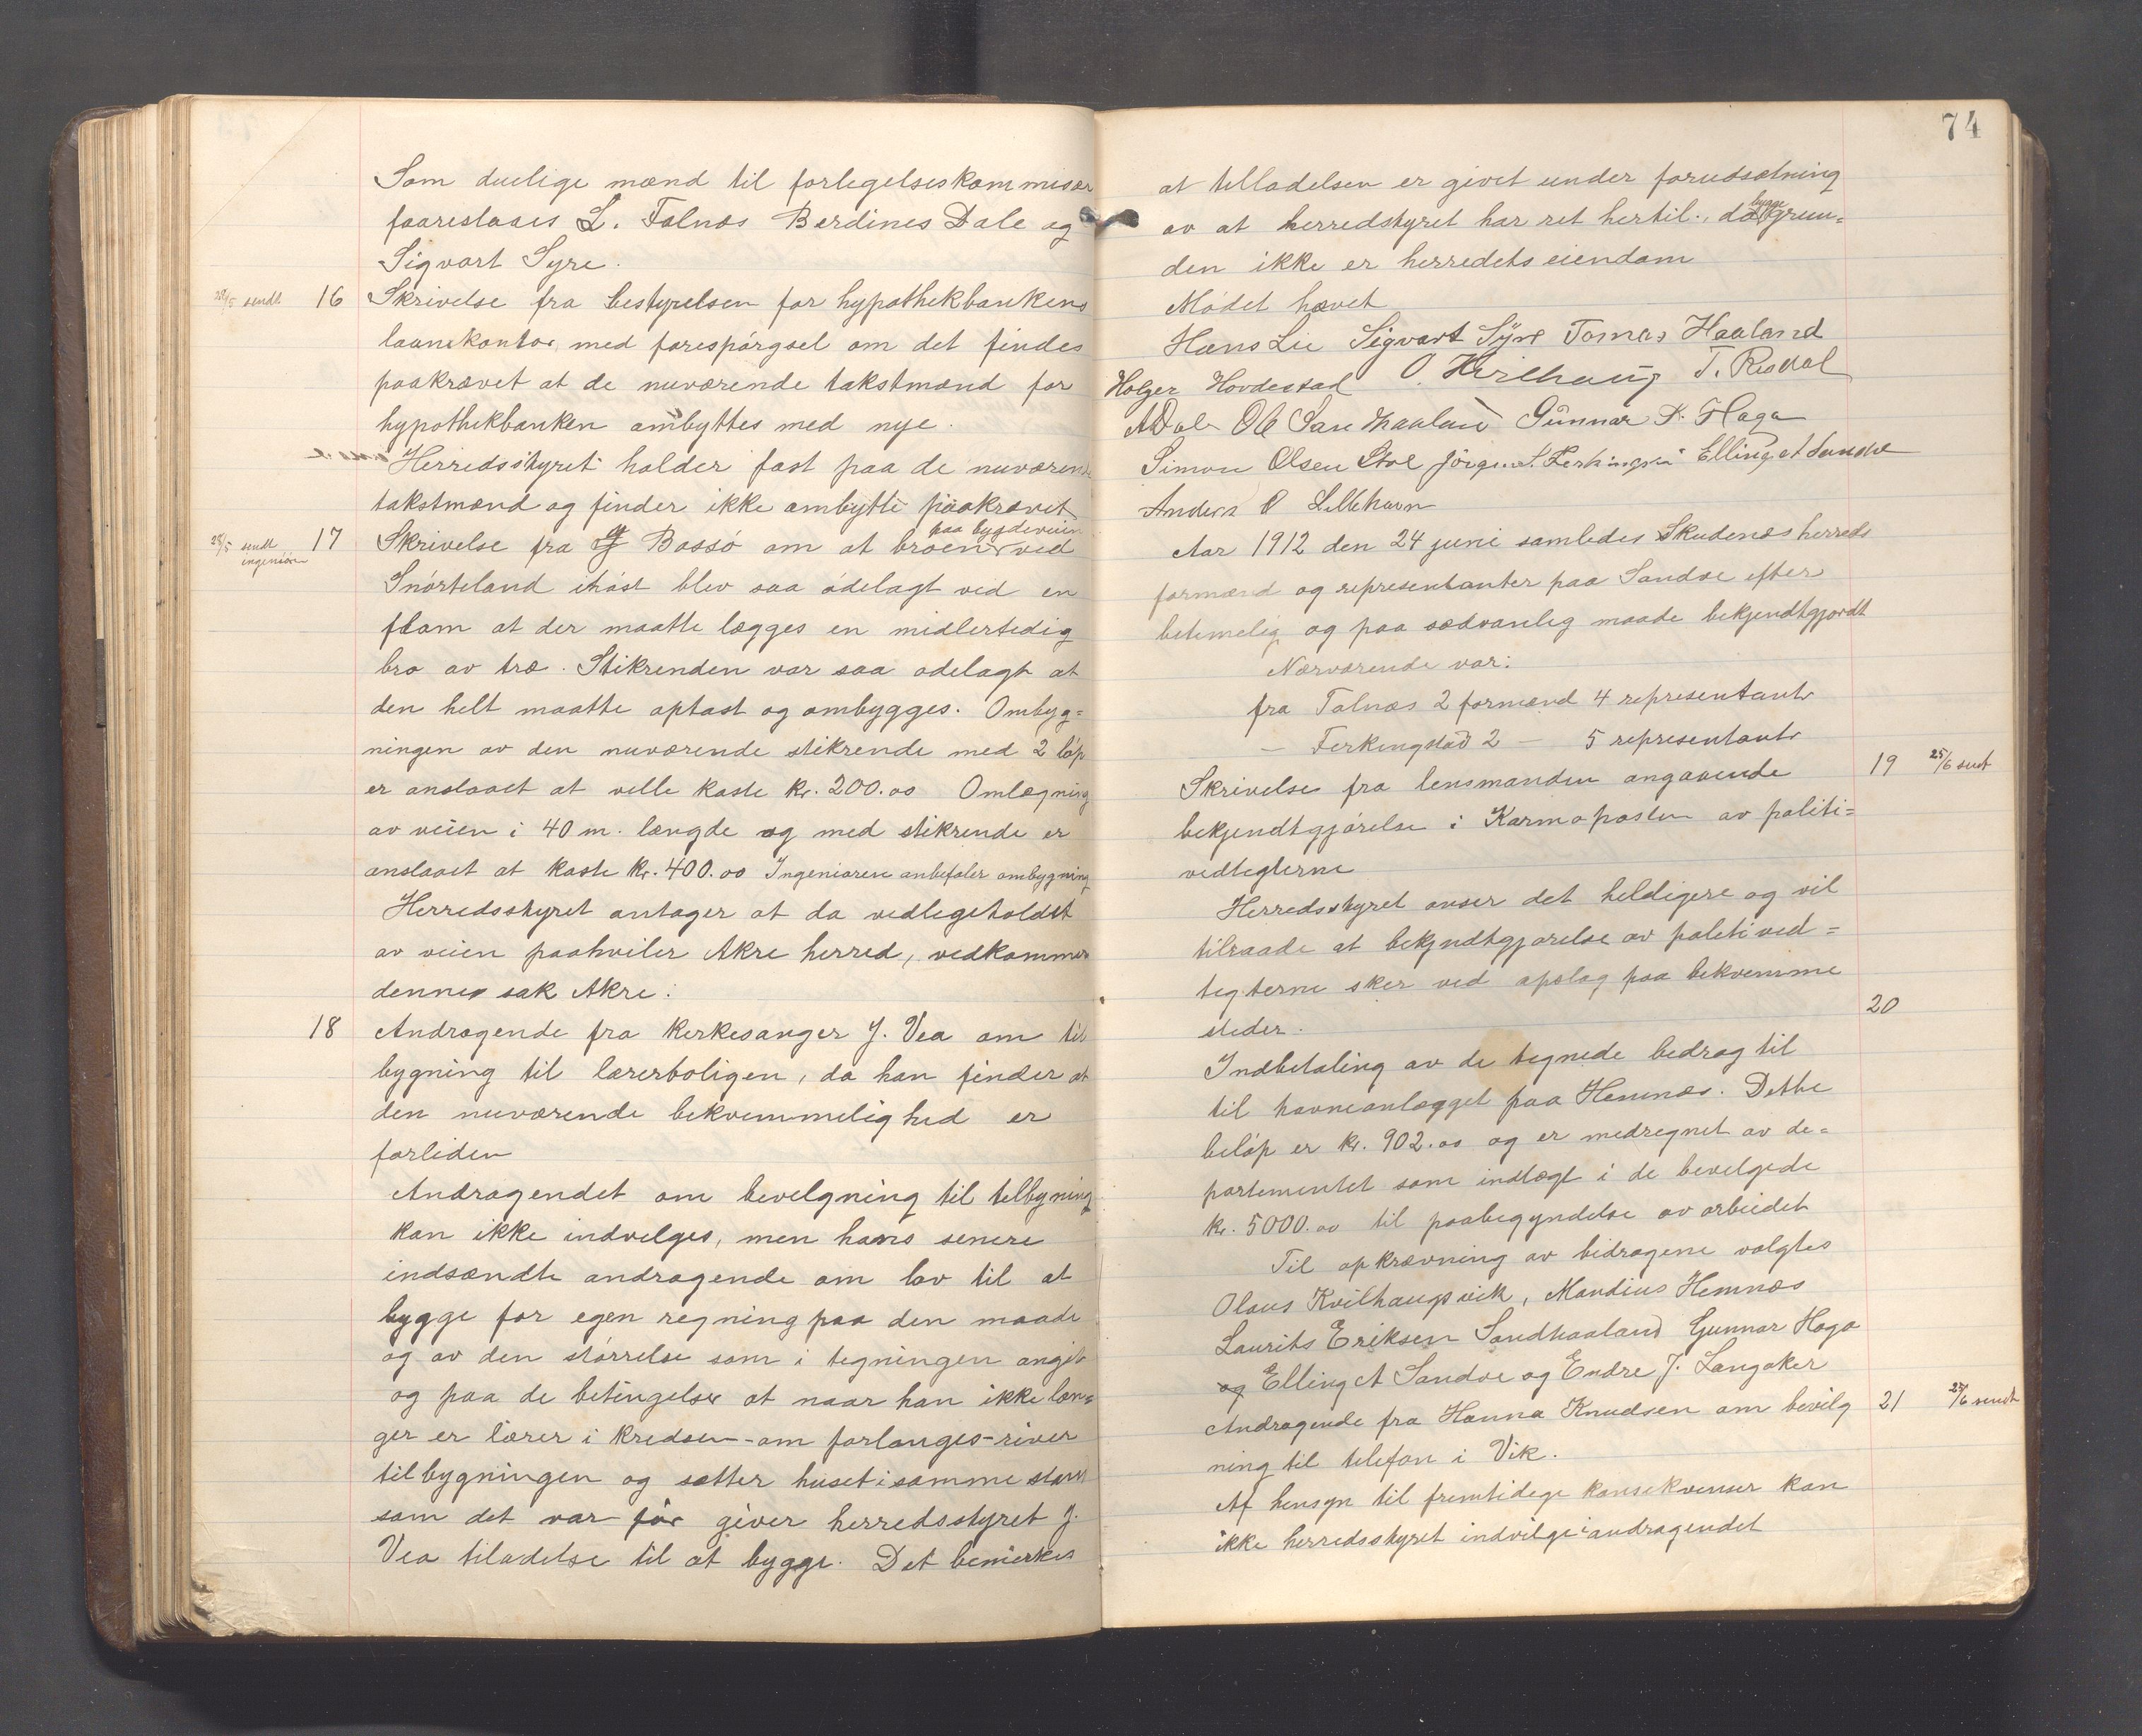 Som duelige mænd til forlegelseskommisær
foareslaaes L. Falnæs Berdines Dale og
Sigvart Syre.
28/5 sendt 16 Skrivelse fra bestyrelsen for hypothekbankens
laanekontor med forespørgsel om det findes
paakrævet at de nuværende takstmænd for
hypothekbanken ombyttes med nye.
Herredsstyret holder fast paa de nuværende
takstmænd og finder ikke ombytte paakrævet
28/5 sendt ingeniøren 17 Skrivelse fra G Bassø om at broen paa bygdeveien ved
Snørteland ihøst blev saa ødelagt ved en
flom at der maatte lægges en midlertedig
bro av træ. Stikrenden var saa ødelagt at
den helt maatte optast og ombygges. Ombyg=
ningen av den nuværende stikrende med 2 løp
er anslaaet at ville koste kr. 200.00 Omlægning
av veien i 40 m. længde og med stikrende er
anslaaet at koste kr. 400.00 Ingeniøren anbefaler ombygning
Herredsstyret antager at da vedlegeholdet
av veien paahviler Akre herred, vedkommer
denne sak Akre.
18 Andragende fra kerkesanger J. Vea om til
bygning til lærerboligen, da han finder at
den nuværende bekvemmelighed er
forliden
Andragendet om bevelgning til telbygning
kan ikke indvelges, men hans senere
indsændte andragende om lov til at
bygge for egen regning paa den maade
og av den størrelse som i tegningen angit
og paa de betingelser at naar han ikke læn=
ger er lærer i kredsen - om forlanges - river
tilbygningen og sætter huset i samme stand
som det var før giver herredsstyret J.
Vea tiladelse til at bygge. Det bemerkes
74
at telladelsen er givet under forudsætning
av at herredstyret har ret hertil., da bygge grun=
den ikke er herredets eiendom
Mødet hævet
Hans Lie Sigvart Syre Tomas Haaland
Holger Hovdestad O. Kvilhaug T. Risdal
A Dale Ole Sandhaaland Gunnar K. Haga
Simon Olsen Stol Jørgen S. Ferkingsta Elling A Sandve
Anders O Lillehavn
Aar 1912 den 24 juni samledes Skudenæs herreds
formænd og representanter paa Sandve efter
betimelig og paa sædvanleg maade bekjendtgjordt
Nærværende var:
fra Falnæs 2 formænd 4 representantr
— Ferkingstad 2 — 5 representantr
Skrivelse fra lensmanden angaaende 19 25/6 sendt
bekjendtgjørelse i Karmøposten av politi=
vedtegterne
Herredsstyret anser det heldigere og vil
tilraade at bekjndtgjørelse av politived=
tegterne sker ved opslag paa bekvemme
steder.
20
Indbetaling av de tegnede bedrag til
til havneanlægget paa Hemnæs. Dette
beløp er kr. 902.00 og er medregnet av de=
partementet som indtægt i de bevelgede
kr. 5000.00 til paabegyndelse av arbeidet
Til opkrævning av bidragene valgtes
Olaus Kvilhaugsvik, Mandius Hemnæs
Laurits Eriksen Sandhaaland Gunnar Haga
og Elling A Sandve og Endre J. Langaker
Andragende fra Hanna Knudsen om bevilg 21 25/6 sendt
ning til telefon i Vik.
Af hensyn til fremtidege konsekvenser kan
ikke herredsstyret indvilge andragendet